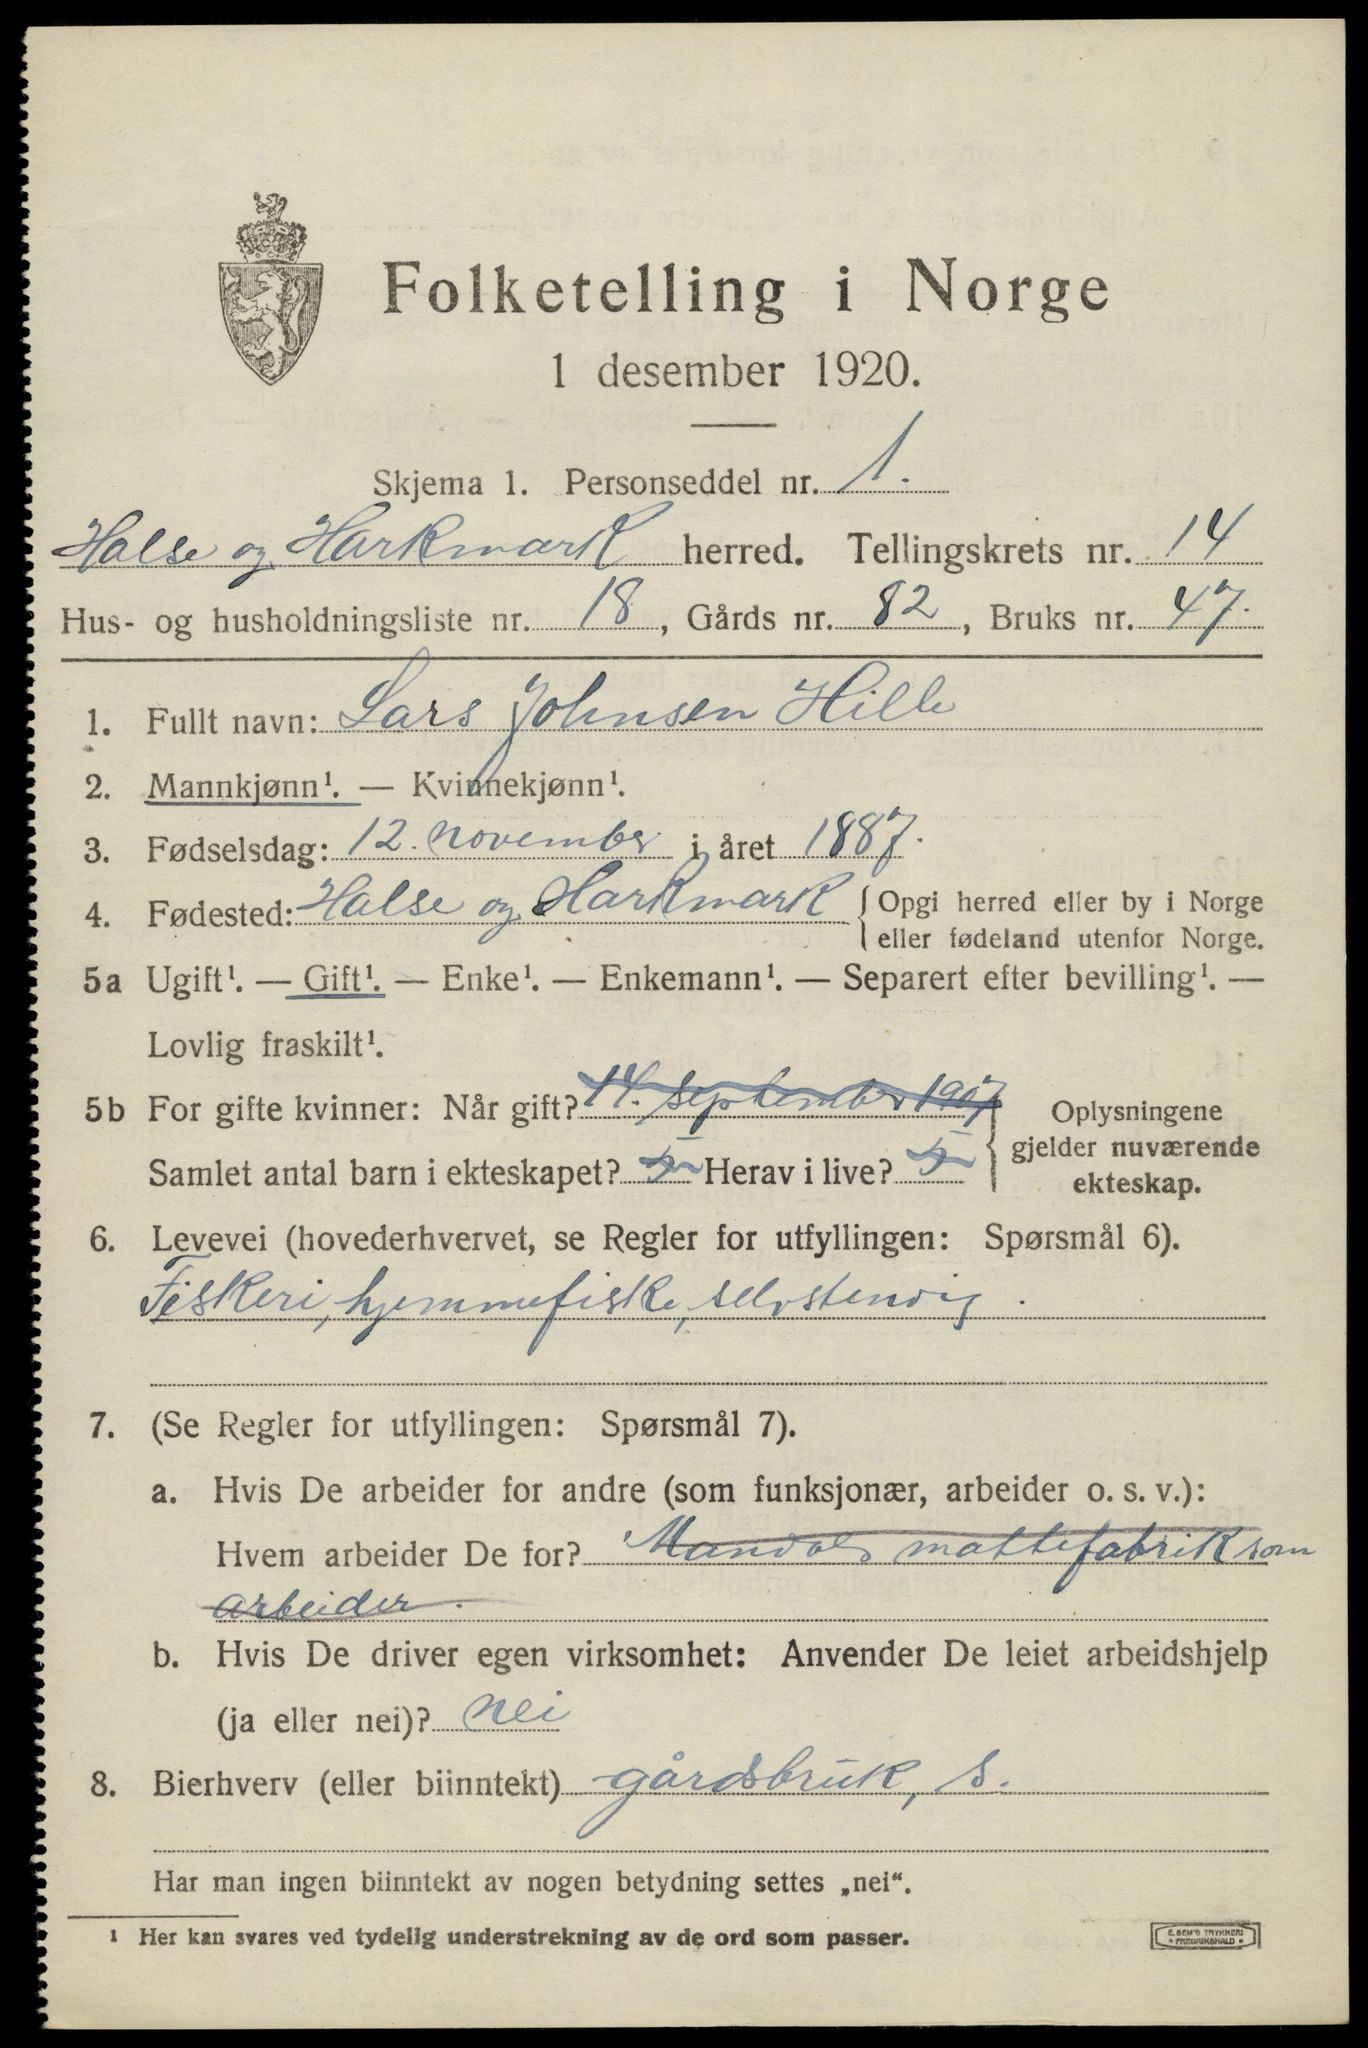 Folketelling i Norge
1 desember 1920.
Skjema 1. Personseddel nr. 1.
Halse og Harkmark herred. Tellingskrets nr. 14
Hus- og husholdningsliste nr. 18, Gårds nr. 82, Bruks nr. 47.
1. Fullt navn: Lars Johnsen Hille
2. Mannkjønn¹. — Kvinnekjønn¹.
3. Fødselsdag: 12. november i året 1887.
4. Fødested: Halse og Harkmark { Opgi herred eller by i Norge
eller fødeland utenfor Norge.
5a Ugift¹. — Gift¹. — Enke¹. — Enkemann¹. — Separert efter bevilling¹. —
Lovlig fraskilt¹.
5b For gifte kvinner: Når gift? 14. september 1907 } Oplysningene
gjelder nuværende
Samlet antal barn i ekteskapet? 5 Herav i live? 5
ekteskap.
6. Levevei (hovederhvervet, se Regler for utfyllingen: Spørsmål 6).
Fiskeri, hjemmefiske, selvstendig.
7. (Se Regler for utfyllingen: Spørsmål 7).
a. Hvis De arbeider for andre (som funksjonær, arbeider o. s. v.):
Hvem arbeider De for? Mandals mattefabrik som
arbeider.
b. Hvis De driver egen virksomhet: Anvender De leiet arbeidshjelp
(ja eller nei)? nei
8. Bierhverv (eller biinntekt) gårdsbruk, s.
Har man ingen biinntekt av nogen betydning settes „nei“.
¹ Her kan svares ved tydelig understrekning av de ord som passer.
E. SEM'S TRYKKERI
* FREDRIKSHALD *